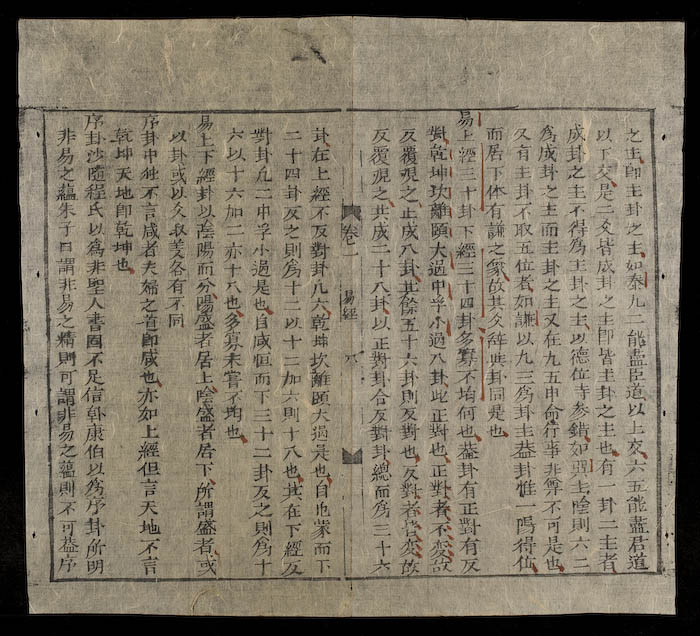 之主卽主卦之主如泰九二能盡臣道以上交六五能盡君道
以下交是二爻皆成卦之主卽皆主卦之主也有一卦二主者
成卦之主不得為主卦之主以德位時參錯如
為成卦之主而主卦之主又在九五申命行事非尊不可是也
又有主卦不取五位者如謙以九三為卦主葢卦惟一陽得位
而居下体有謙之象故其爻辞與卦同是也
易上經三十卦下經三十四卦多寡不均何也葢卦有正對有反
對乾坤坎離頤大過中孚小過八卦此正對也正對者不変故
反覆視之止成八卦其餘五十六卦則反對也反對者皆変故
反覆視之共成二十八卦以正對卦合反對卦總而為三十六
卷一 易經
卦在上經不反對卦凡六乾坤坎離頤大過是也自屯蒙而下
二十四卦反之則為十二以十二加六則十八也其在下經反
對卦凢二中孚小過是也自咸恒而下三十二卦反之則為十
六以十六加二亦十八也多寡未嘗不均也
易上下經卦以陰陽而分陽盛者居上陰盛者居下所謂盛者或
以卦或以爻取義各有不同
序卦中独不言咸者夫婦之道卽咸也亦如上經但言天地不言
乾坤天地卽乾坤也
序卦沙随程氏以為非聖人書固不足信韓康伯以為序卦所明
非易之蘊朱子曰謂非易之精則可謂非易之蘊則不可葢序